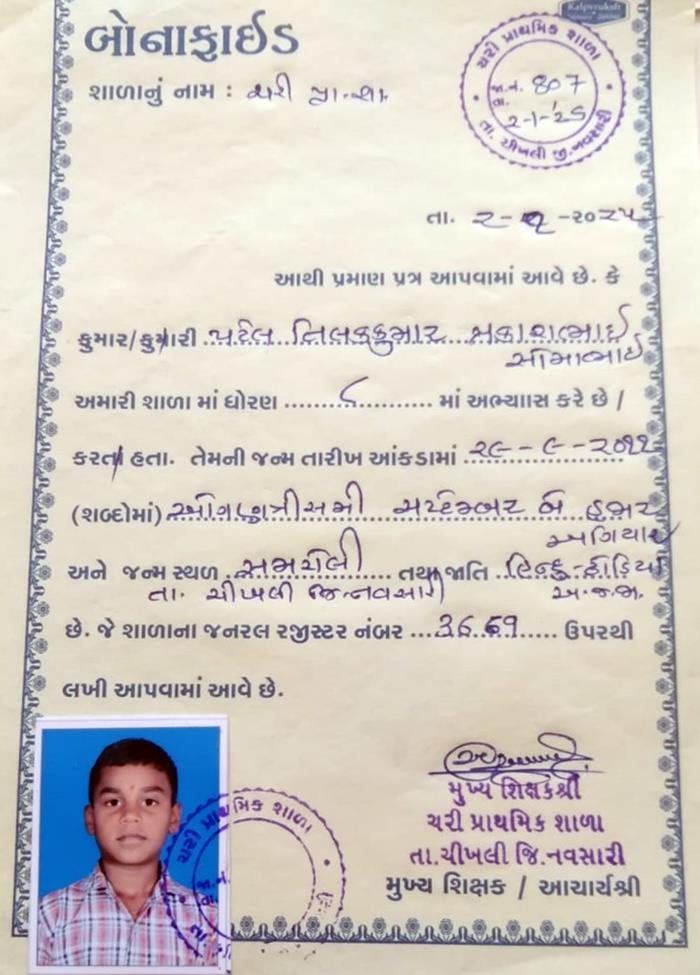 Kalpvruksh
બોનાફાઈડ
શાળાનું નામ : ચરી પ્રા.શા.
ચરી પ્રાથમિક શાળા
જા.નં. 807
તા. ૨-૧-'૨૫
તા. ચીખલી જી.નવસારી
તા. ૨-૧-૨૦૨૫
આથી પ્રમાણ પત્ર આપવામાં આવે છે. કે
કુમાર/કુમારી પટેલ તિલકકુમાર પ્રકાશભાઈ
સોમાભાઈ
અમારી શાળા માં ધોરણ ૮ માં અભ્યાસ કરે છે /
કરતા હતા. તેમની જન્મ તારીખ આંકડામાં ૨૯-૯-૨૦૧૧
(શબ્દોમાં) ઓગણત્રીસમી સપ્ટેમ્બર બે હજાર
અગિયાર
અને જન્મ સ્થળ સમરોલી તથા જાતિ હિન્દુ-ધોડિયા
તા. ચીખલી જિ.નવસારી અ.જ.જા.
છે. જે શાળાના જનરલ રજીસ્ટર નંબર 3669 ઉપરથી
લખી આપવામાં આવે છે.
મુખ્ય શિક્ષકશ્રી
ચરી પ્રાથમિક શાળા
તા.ચીખલી જિ.નવસારી
મુખ્ય શિક્ષક / આચાર્યશ્રી
ચરી પ્રાથમિક શાળા
જા.નં.
તા.